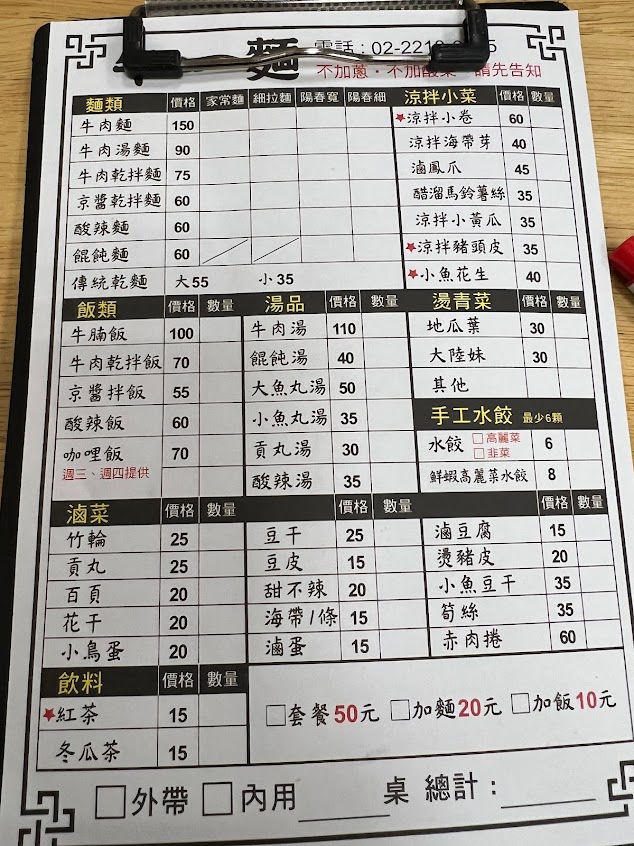 麵 電話：02-221
不加蔥．不加酸菜．請先告知
麵類 價格 家常麵 細拉麵 陽春寬 陽春細
牛肉麵 150
牛肉湯麵 90
牛肉乾拌麵 75
京醬乾拌麵 60
酸辣麵 60
餛飩麵 60
傳統乾麵 大55 小35
涼拌小菜 價格 數量
涼拌小卷 60
涼拌海帶芽 40
滷鳳爪 45
醋溜馬鈴薯絲 35
涼拌小黃瓜 35
涼拌豬頭皮 35
小魚花生 40
飯類 價格 數量
牛腩飯 100
牛肉乾拌飯 70
京醬拌飯 55
酸辣飯 60
咖哩飯 70
週三、週四提供
湯品 價格 數量
牛肉湯 110
餛飩湯 40
大魚丸湯 50
小魚丸湯 35
貢丸湯 30
酸辣湯 35
燙青菜 價格 數量
地瓜葉 30
大陸妹 30
其他
手工水餃 最少6顆
水餃 □高麗菜 □韭菜 6
鮮蝦高麗菜水餃 8
滷菜 價格 數量 價格 數量 價格 數量
竹輪 25 豆干 25 滷豆腐 15
貢丸 25 豆皮 15 燙豬皮 20
百頁 20 甜不辣 20 小魚豆干 35
花干 20 海帶/條 15 筍絲 35
小鳥蛋 20 滷蛋 15 赤肉捲 60
飲料 價格 數量
紅茶 15
冬瓜茶 15
□套餐50元 □加麵20元 □加飯10元
□外帶 □內用 桌 總計：